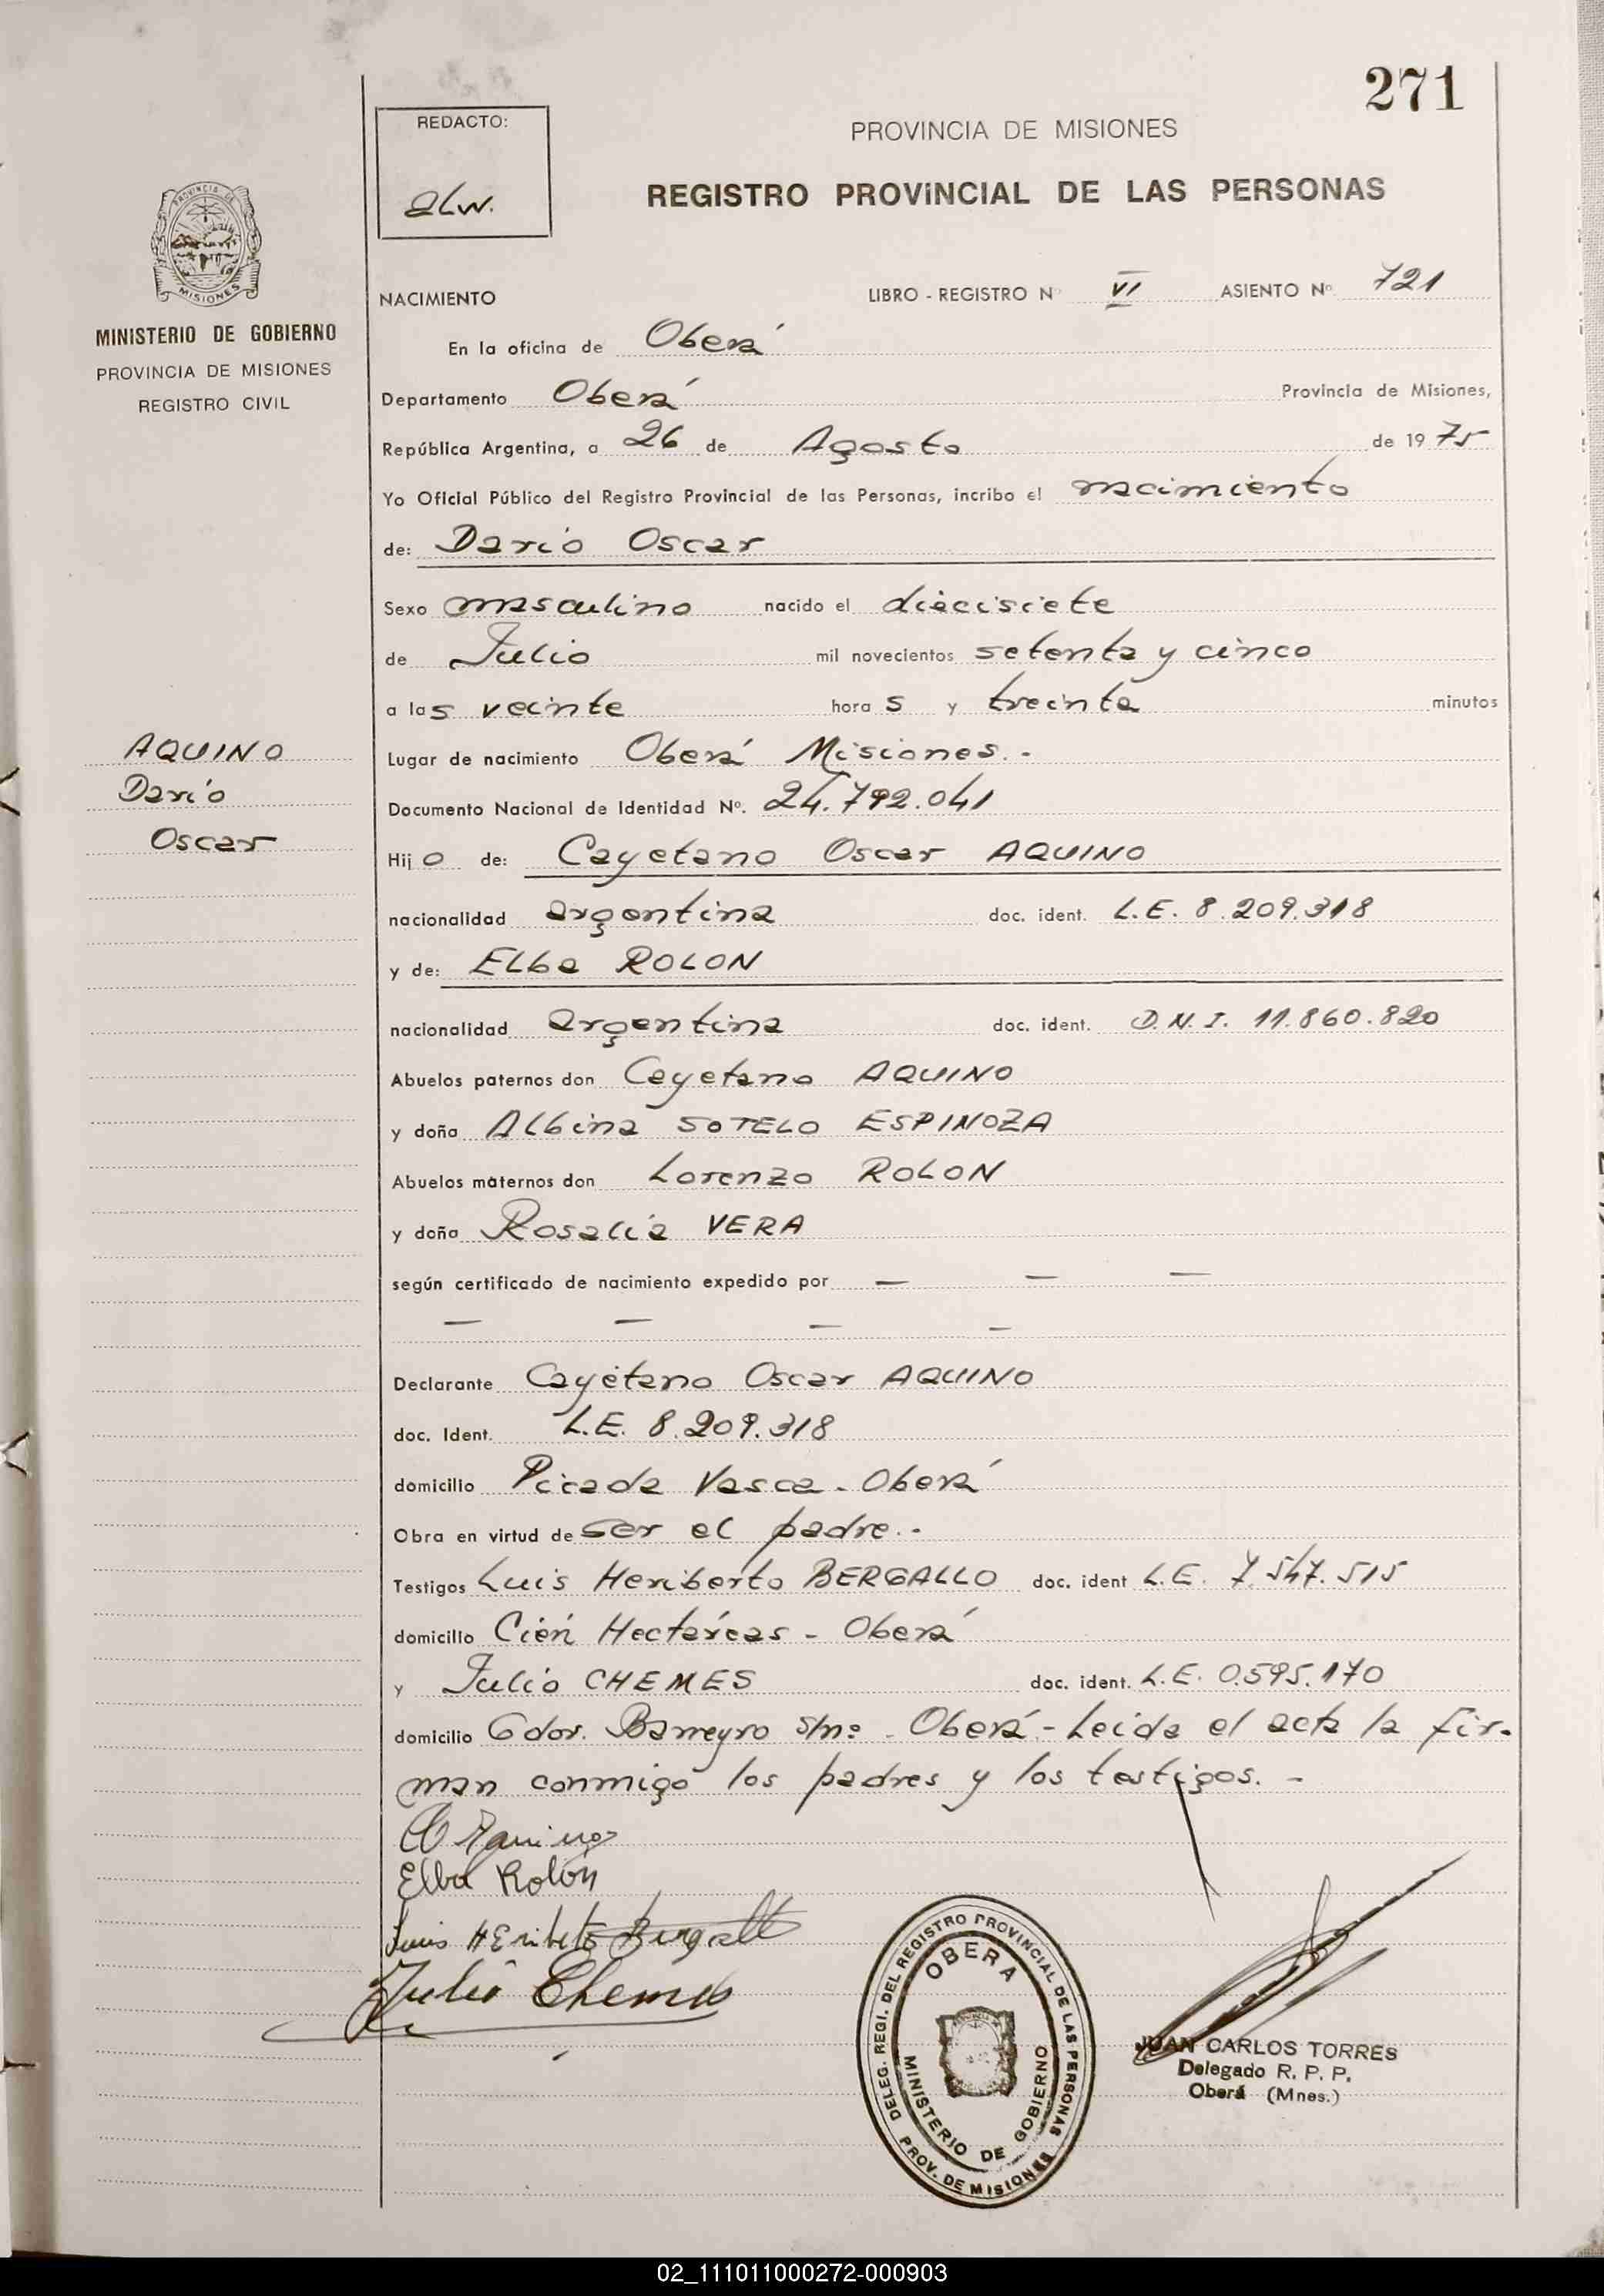 271
REDACTO:
PROVINCIA DE MISIONES
REGISTRO PROVINCIAL DE LAS PERSONAS
PROVINCIA DE
MISIONES
MINISTERIO DE GOBIERNO
PROVINCIA DE MISIONES
REGISTRO CIVIL
NACIMIENTO LIBRO - REGISTRO Nº VI ASIENTO Nº 721
En la oficina de Oberá
Departamento Oberá Provincia de Misiones,
República Argentina, a 26 de Agosto de 1975
Yo Oficial Público del Registro Provincial de las Personas, incribo el nacimiento
de: Dario Oscar
Sexo masculino nacido el diecisiete
de Julio mil novecientos setenta y cinco
a las veinte horas y treinta minutos
Lugar de nacimiento Oberá Misiones.-
Documento Nacional de Identidad Nº. 24.792.041
Hijo de: Cayetano Oscar AQUINO
nacionalidad argentina doc. ident. L.E. 8.209.318
y de: Elba ROLON
nacionalidad argentina doc. ident. D.N.I. 11.860.820
Abuelos paternos don Cayetano AQUINO
y doña Albina SOTELO ESPINOZA
Abuelos maternos don Lorenzo ROLON
y doña Rosalia VERA
según certificado de nacimiento expedido por — — —
— — — —
Declarante Cayetano Oscar AQUINO
doc. Ident. L.E. 8.209.318
domicilio Picada Vasca - Oberá
Obra en virtud de ser el padre.-
Testigos Luis Heriberto BERGALLO doc. ident L.E. 7.547.515
domicilio Cien Hectáreas - Oberá
y Julio CHEMES doc. ident. L.E. 0.595.170
domicilio Gdor. Barreyro s/nº - Oberá - Leida el acta la fir-
man conmigo los padres y los testigos. -
AQUINO
Dario
Oscar
Elba Rolón
Luis HEriberto Bergallo
Julio Chemes
DELEG. REGI. DEL REGISTRO PROVINCIAL DE LAS PERSONAS
PROV. DE MISIONES
OBERA
MINISTERIO DE GOBIERNO
JUAN CARLOS TORRES
Delegado R. P. P.
Oberá (Mnes.)
02_111011000272-000903